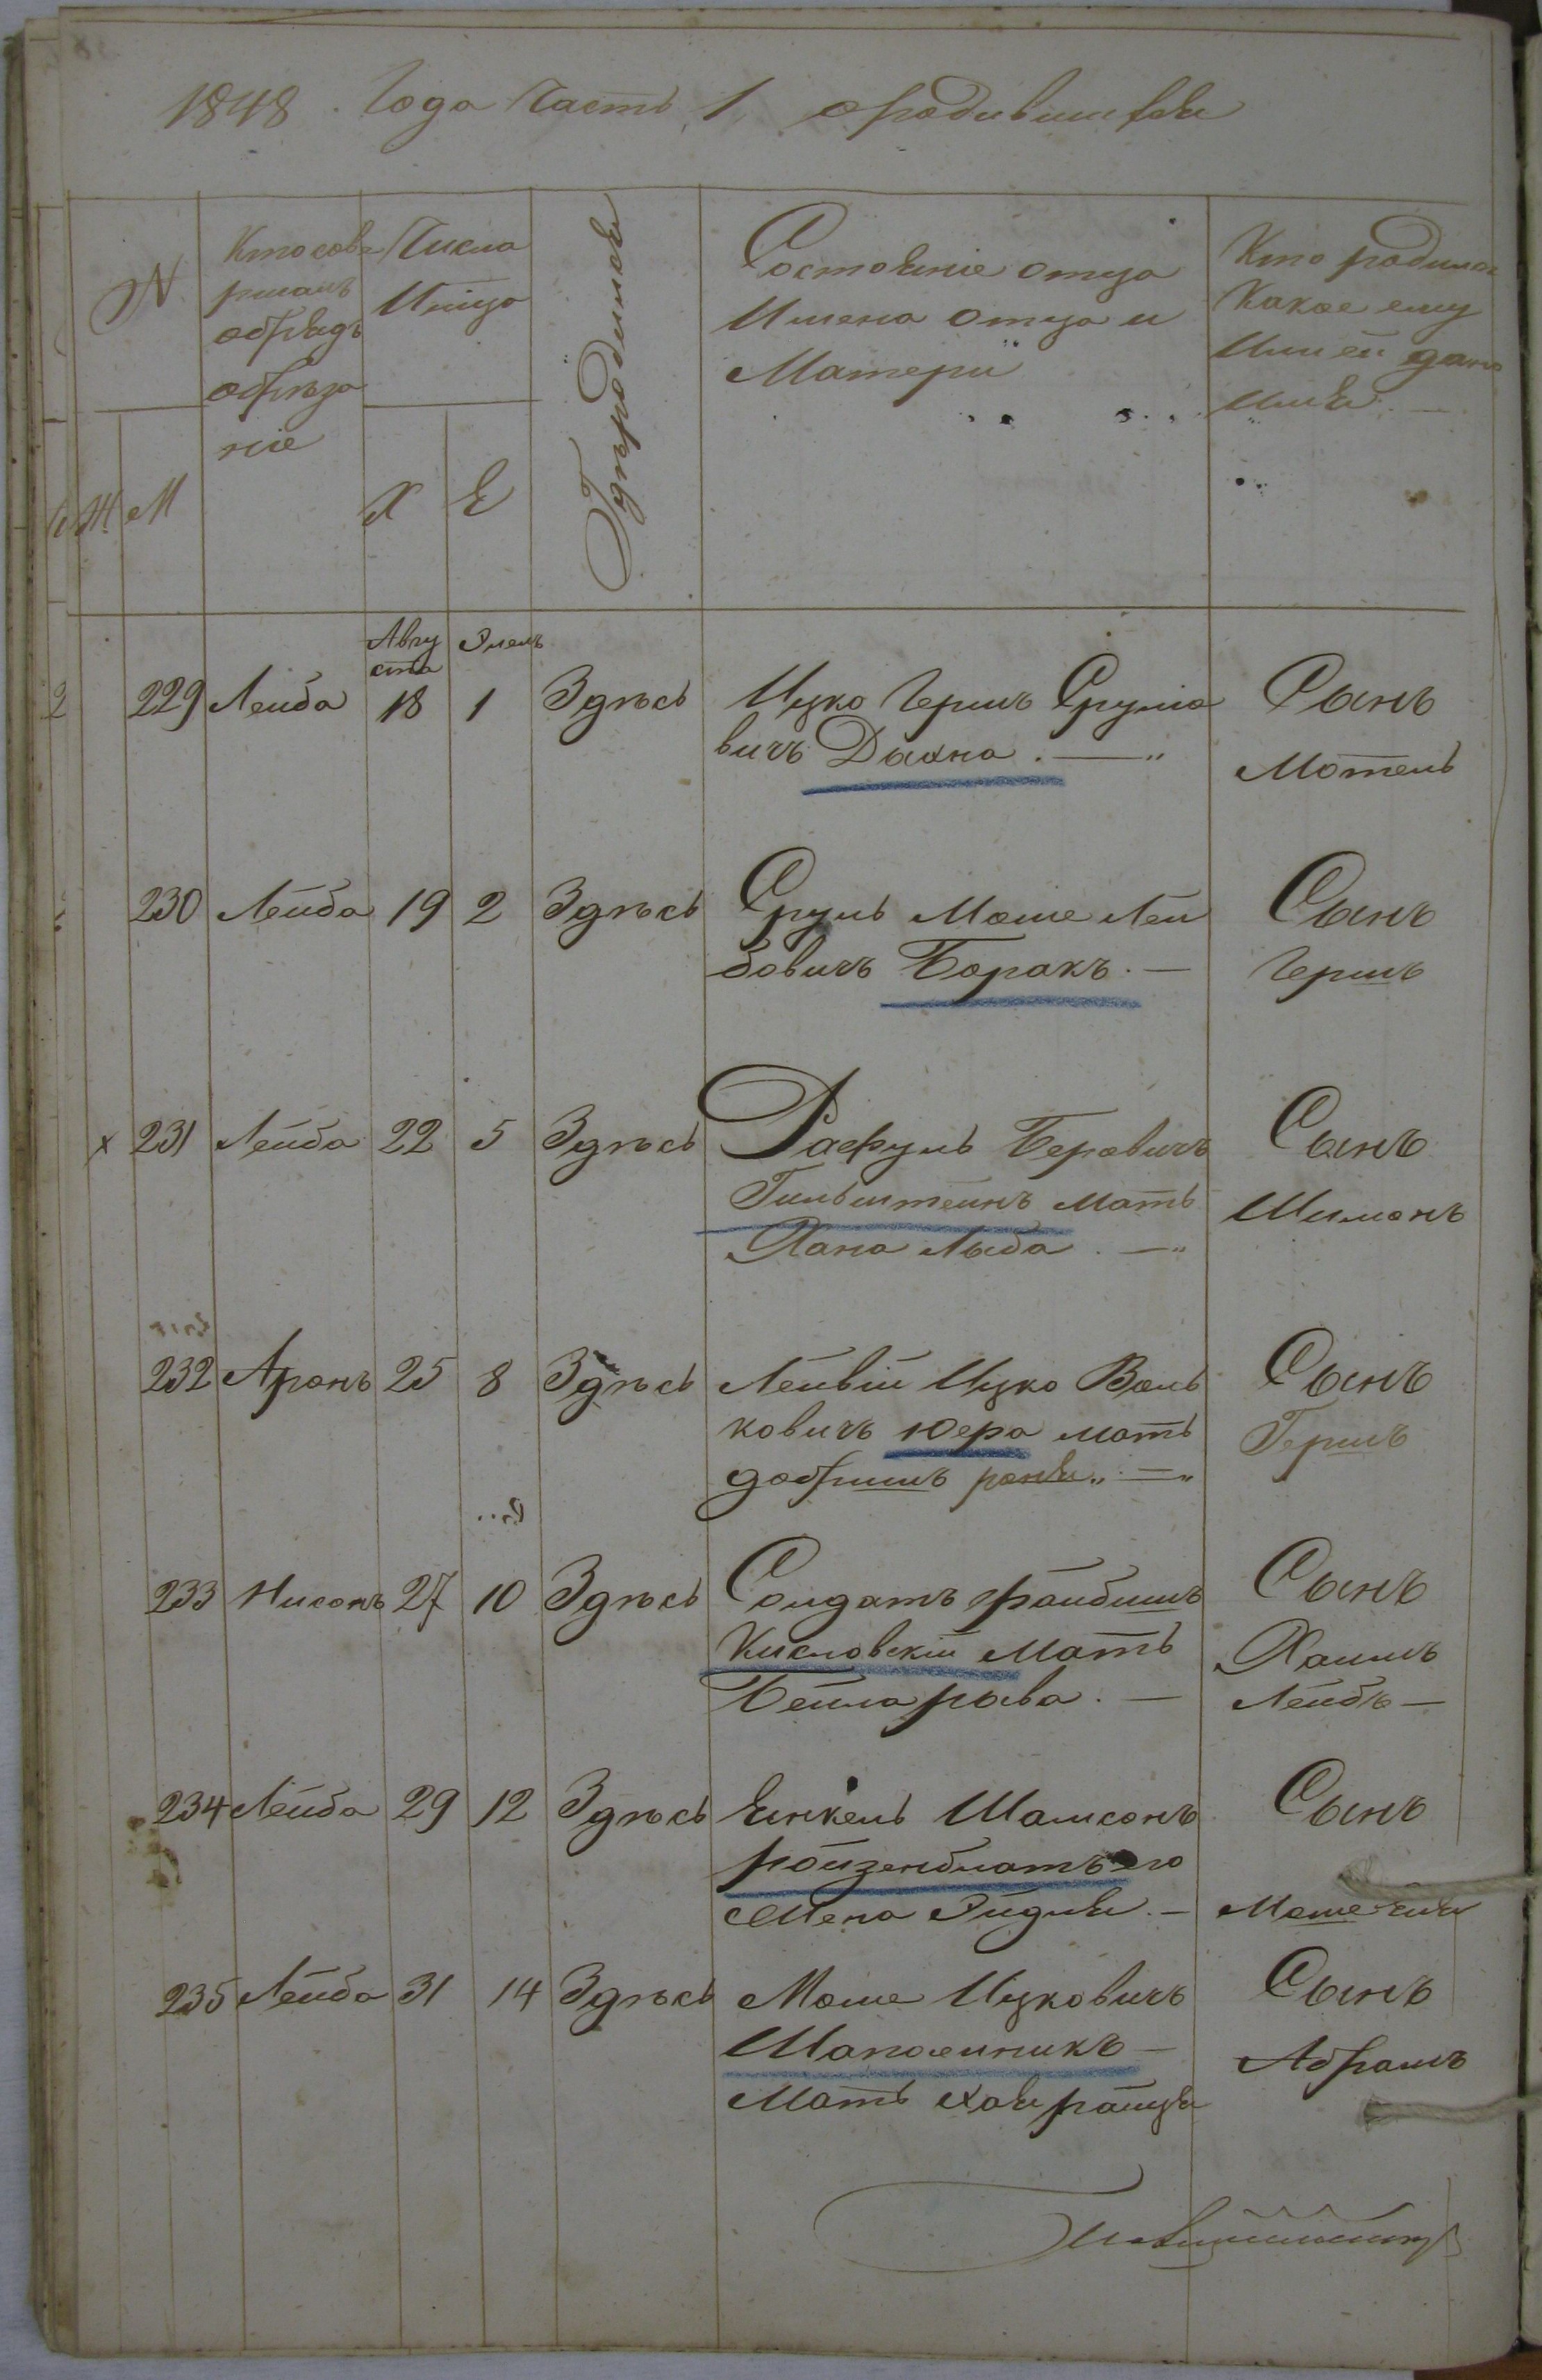 1848 Года Часть 1 ородившихся
№
Ктосове
ршалъ
обрядъ
обрѣза
ніе
Числа
Мѣца
Гдѣродился
Состояніе отца
Имена отца и
Матери
Кто родился
Какое ему
Или ей дано
имя. —
Ж М
Х Е
Авгу
ста
Элелъ
229 Лейба 18 1 Здѣсь Ицко Гершъ Сруліо
вичъ Дахна. —
Сынъ
Мотель
230 Лейба 19 2 Здѣсь Сруль Моше Лей
бовичъ Боракъ. —
Сынъ
Гершъ
х 231 Лейба 22 5 Здѣсь Рафуль Беровичъ
Гильштейнъ мать
Хана Лыба. —
Сынъ
Шимонъ
232 Аронъ 25 8 Здѣсь Лейвій Ицко Воль
ковичъ Юера мать
добришъ роня —
Сынъ
Гершъ
233 Нисонъ 27 10 Здѣсь Солдатъ файбишъ
Кисловскій Мать
Бейла рыва. —
Сынъ
Хаимъ
Лейбъ —
234 Лейба 29 12 Здѣсь Янкель Шамсонъ
ройзенблатъ его
Жена Эйдля. —
Сынъ
Моше
235 Лейба 31 14 Здѣсь Моше Ицковичъ
Шапаейникъ —
Мать хая райця
Сынъ
Абрамъ